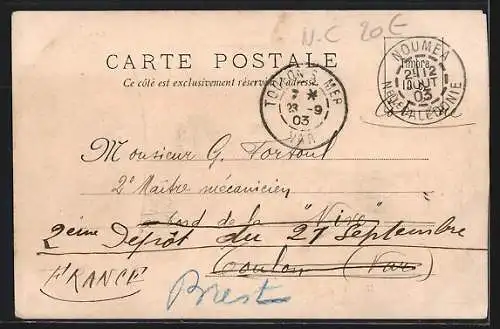 N-C 20E
CARTE POSTALE
Ce côté est exclusivement réservé à l'adresse.
NOUMEA
2E 12
AOUT
03
Nlle CALEDONIE
TOULON S. MER
7 *
23 -9
03
VAR
Monsieur G. Tortout
2e Maître mécanicien
à bord de la "Nive"
2ème Dépôt du 27 Septembre
Toulon (Var)
FRANCE
Brest